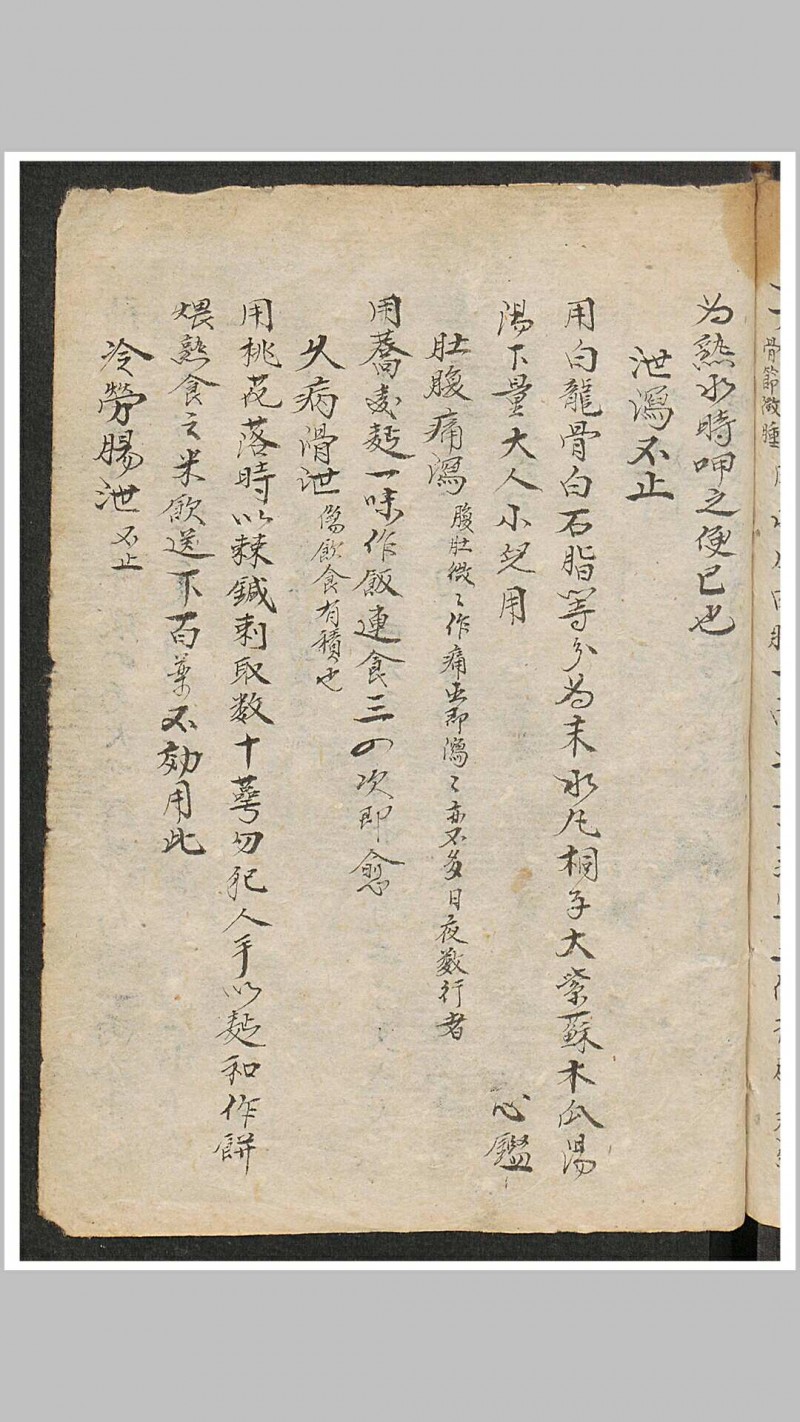 骨節微腫
为熱水時呷之便已也
泄瀉不止
用白龍骨白石脂等分为末水丸桐子大紫蘇木瓜湯
湯下量大人小兒用 心鑑
肚腹痛瀉 腹肚微〻作痛即瀉〻亦不多日夜數行者
用蕎麦麪一味作飯連食三四次即愈
久病滑泄 傷飲食有積也
用桃花落時以棘鍼刺取数十蕚勿犯人手以麪和作餅
煨熟食之米飲送下百薬不効用此
冷勞腸泄 不止